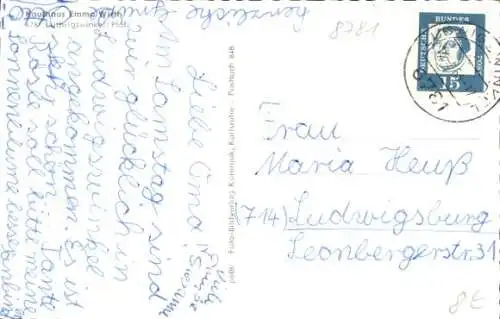 Kurhaus Emma Wirth
6781 Ludwigswinkel / Pfalz
Herzliche Grüße
8781
DEUTSCHE BUNDESPOST
15
Liebe Oma!
Am Samstag sind
wir glücklich in
Ludwigswinkel
angekommen. Es ist
sehr schön. Tante
Rösle soll bitte meine
Sonnenblume
Foto-Bildverlag K. Kiminik, Karlsruhe . Postfach 848
Frau
Maria Heuß
(714) Ludwigsburg
Leonbergerstr. 31
8E